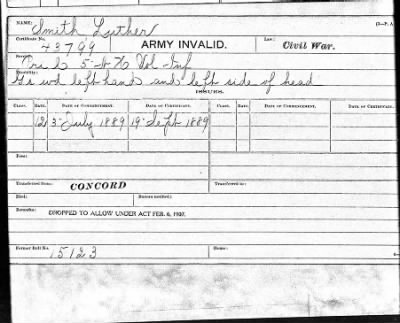 NAME: Smith Luther (3—P. A.
Certificate No. 43799 ARMY INVALID. Law: Civil War.
Service: Pri D 5-N H Vol Inf
Disability: Gs wd left hand and left side of head
ISSUES.
CLASS. RATE. DATE OF COMMENCEMENT. DATE OF CERTIFICATE. CLASS. RATE. DATE OF COMMENCEMENT. DATE OF CERTIFICATE.
12 3 July 1889 19 Sept 1889
Fees:
Transferred from: CONCORD Transferred to:
Died: Bureau notified:
Remarks: DROPPED TO ALLOW UNDER ACT FEB. 6, 1907.
Former Roll No. 15123 Home: